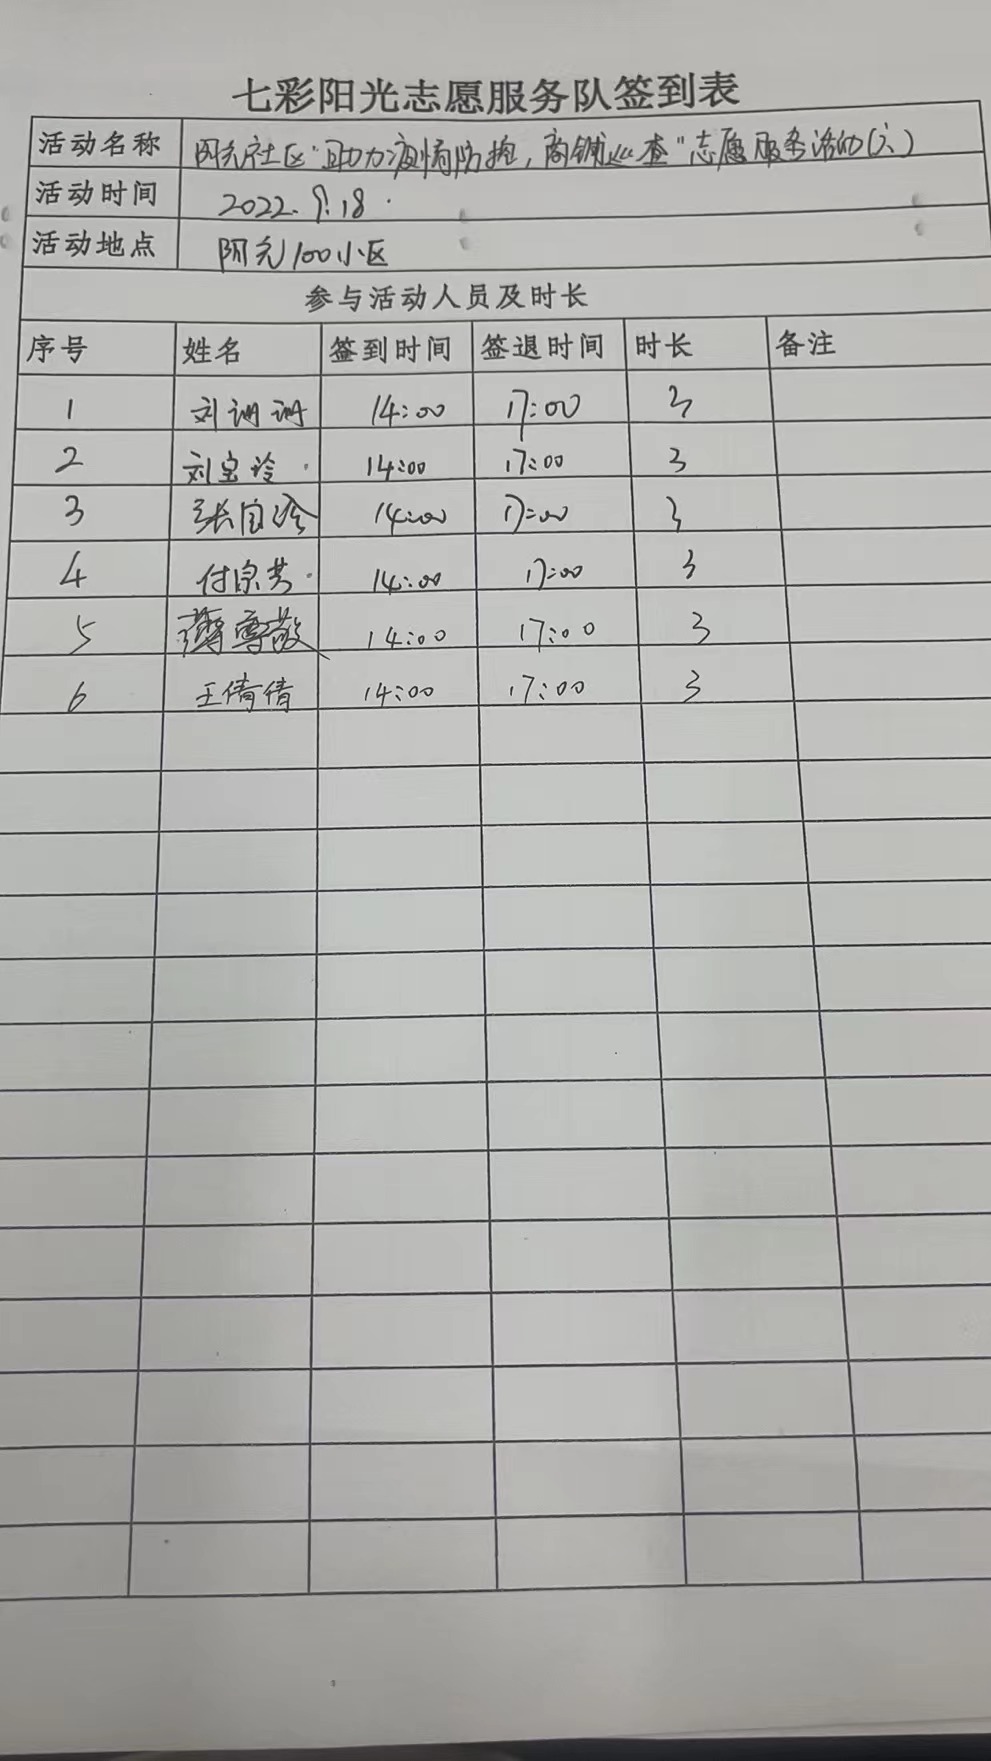 七彩阳光志愿服务队签到表
活动名称 阳光社区"助力疫情防控,商铺巡查"志愿服务活动(六)
活动时间 2022.9.18
活动地点 阳光100小区
参与活动人员及时长
序号 姓名 签到时间 签退时间 时长 备注
1 刘珊珊 14:00 17:00 3
2 刘宝玲 14:00 17:00 3
3 张宝玲 14:00 17:00 3
4 付宗芳 14:00 17:00 3
5 尊敬 14:00 17:00 3
6 王倩倩 14:00 17:00 3